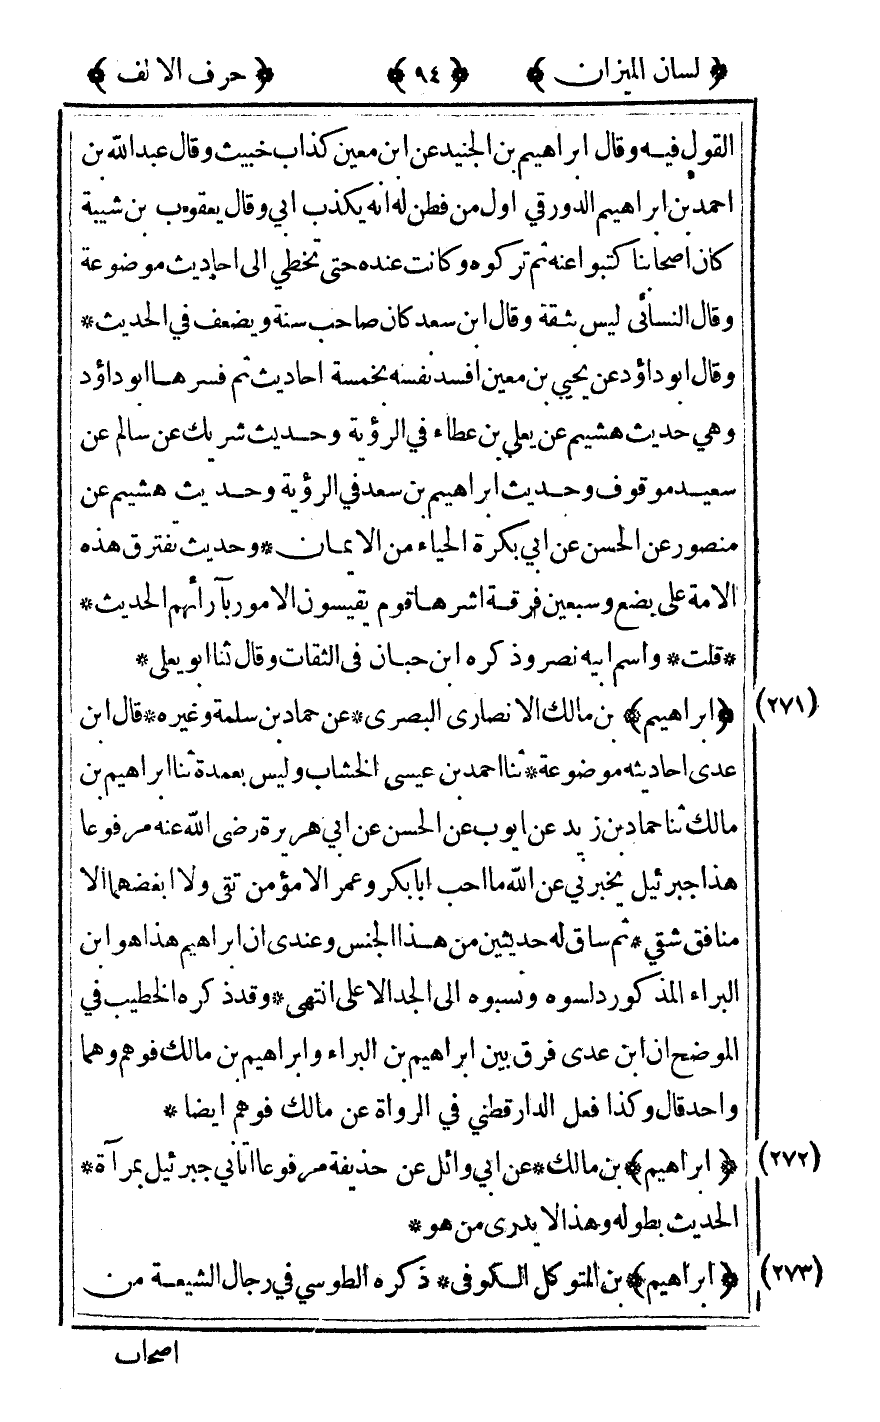 ﴿ لسان الميزان ﴾ ﴿ ٩٤ ﴾ ﴿ حرف الالف ﴾
القول فيه وقال ابراهيم بن الجنيد عن ابن معين كذاب خبيث وقال عبد الله بن
احمد بن ابراهيم الدورقي اول من فطن له انه يكذب ابي وقال يعقوب بن شيبة
كان اصحابنا كتبوا عنه ثم تركوه وكانت عنده حتى تخطي الى احاديث موضوعة
وقال النسائى ليس بثقة وقال ابن سعد كان صاحب سنة ويضعف في الحديث *
وقال ابو داؤد عن يحيى بن معين افسد نفسه بخمسة احاديث ثم فسرها ابو داؤد
وهي حديث هشيم عن يعلي بن عطاء في الرؤية وحديث شريك عن سالم عن
سعيد موقوف وحديث ابراهيم بن سعد في الرؤية وحديث هشيم عن
منصور عن الحسن عن ابي بكرة الحياء من الايمان * وحديث تفترق هذه
الامة على بضع وسبعين فرقة اشرها قوم يقيسون الامور بآرائهم الحديث *
* قلت * واسم ابيه نصر وذكره ابن حبان فى الثقات وقال ثنا ابو يعلي *
(٢٧١) ﴿ ابراهيم ﴾ بن مالك الانصارى البصرى * عن حماد بن سلمة وغيره * قال ابن
عدى احاديثه موضوعة * ثنا احمد بن عيسى الخشاب وليس بعمدة ثنا ابراهيم بن
مالك ثنا حماد بن زيد عن ايوب عن الحسن عن ابي هريرة رضى الله عنه مرفوعا
هذا جبرئيل يخبرني عن الله ما احب ابا بكر وعمر الا مؤمن تقى ولا ابغضهما الا
منافق شقي * ثم ساق له حديثين من هذا الجنس وعندى ان ابراهيم هذا هو ابن
البراء المذكور دلسوه ونسبوه الى الجد الاعلى انتهى * وقد ذكره الخطيب في
الموضح ان ابن عدى فرق بين ابراهيم بن البراء وابراهيم بن مالك فوهم وهما
واحد قال وكذا فعل الدارقطني في الرواة عن مالك فوهم ايضا *
(٢٧٢) ﴿ ابراهيم ﴾ بن مالك * عن ابي وائل عن حذيفة مرفوعا اتاني جبرئيل بمرآة *
الحديث بطوله وهذا لا يدرى من هو *
(٢٧٣) ﴿ ابراهيم ﴾ بن المتوكل الكوفى * ذكره الطوسي في رجال الشيعة من
اصحاب